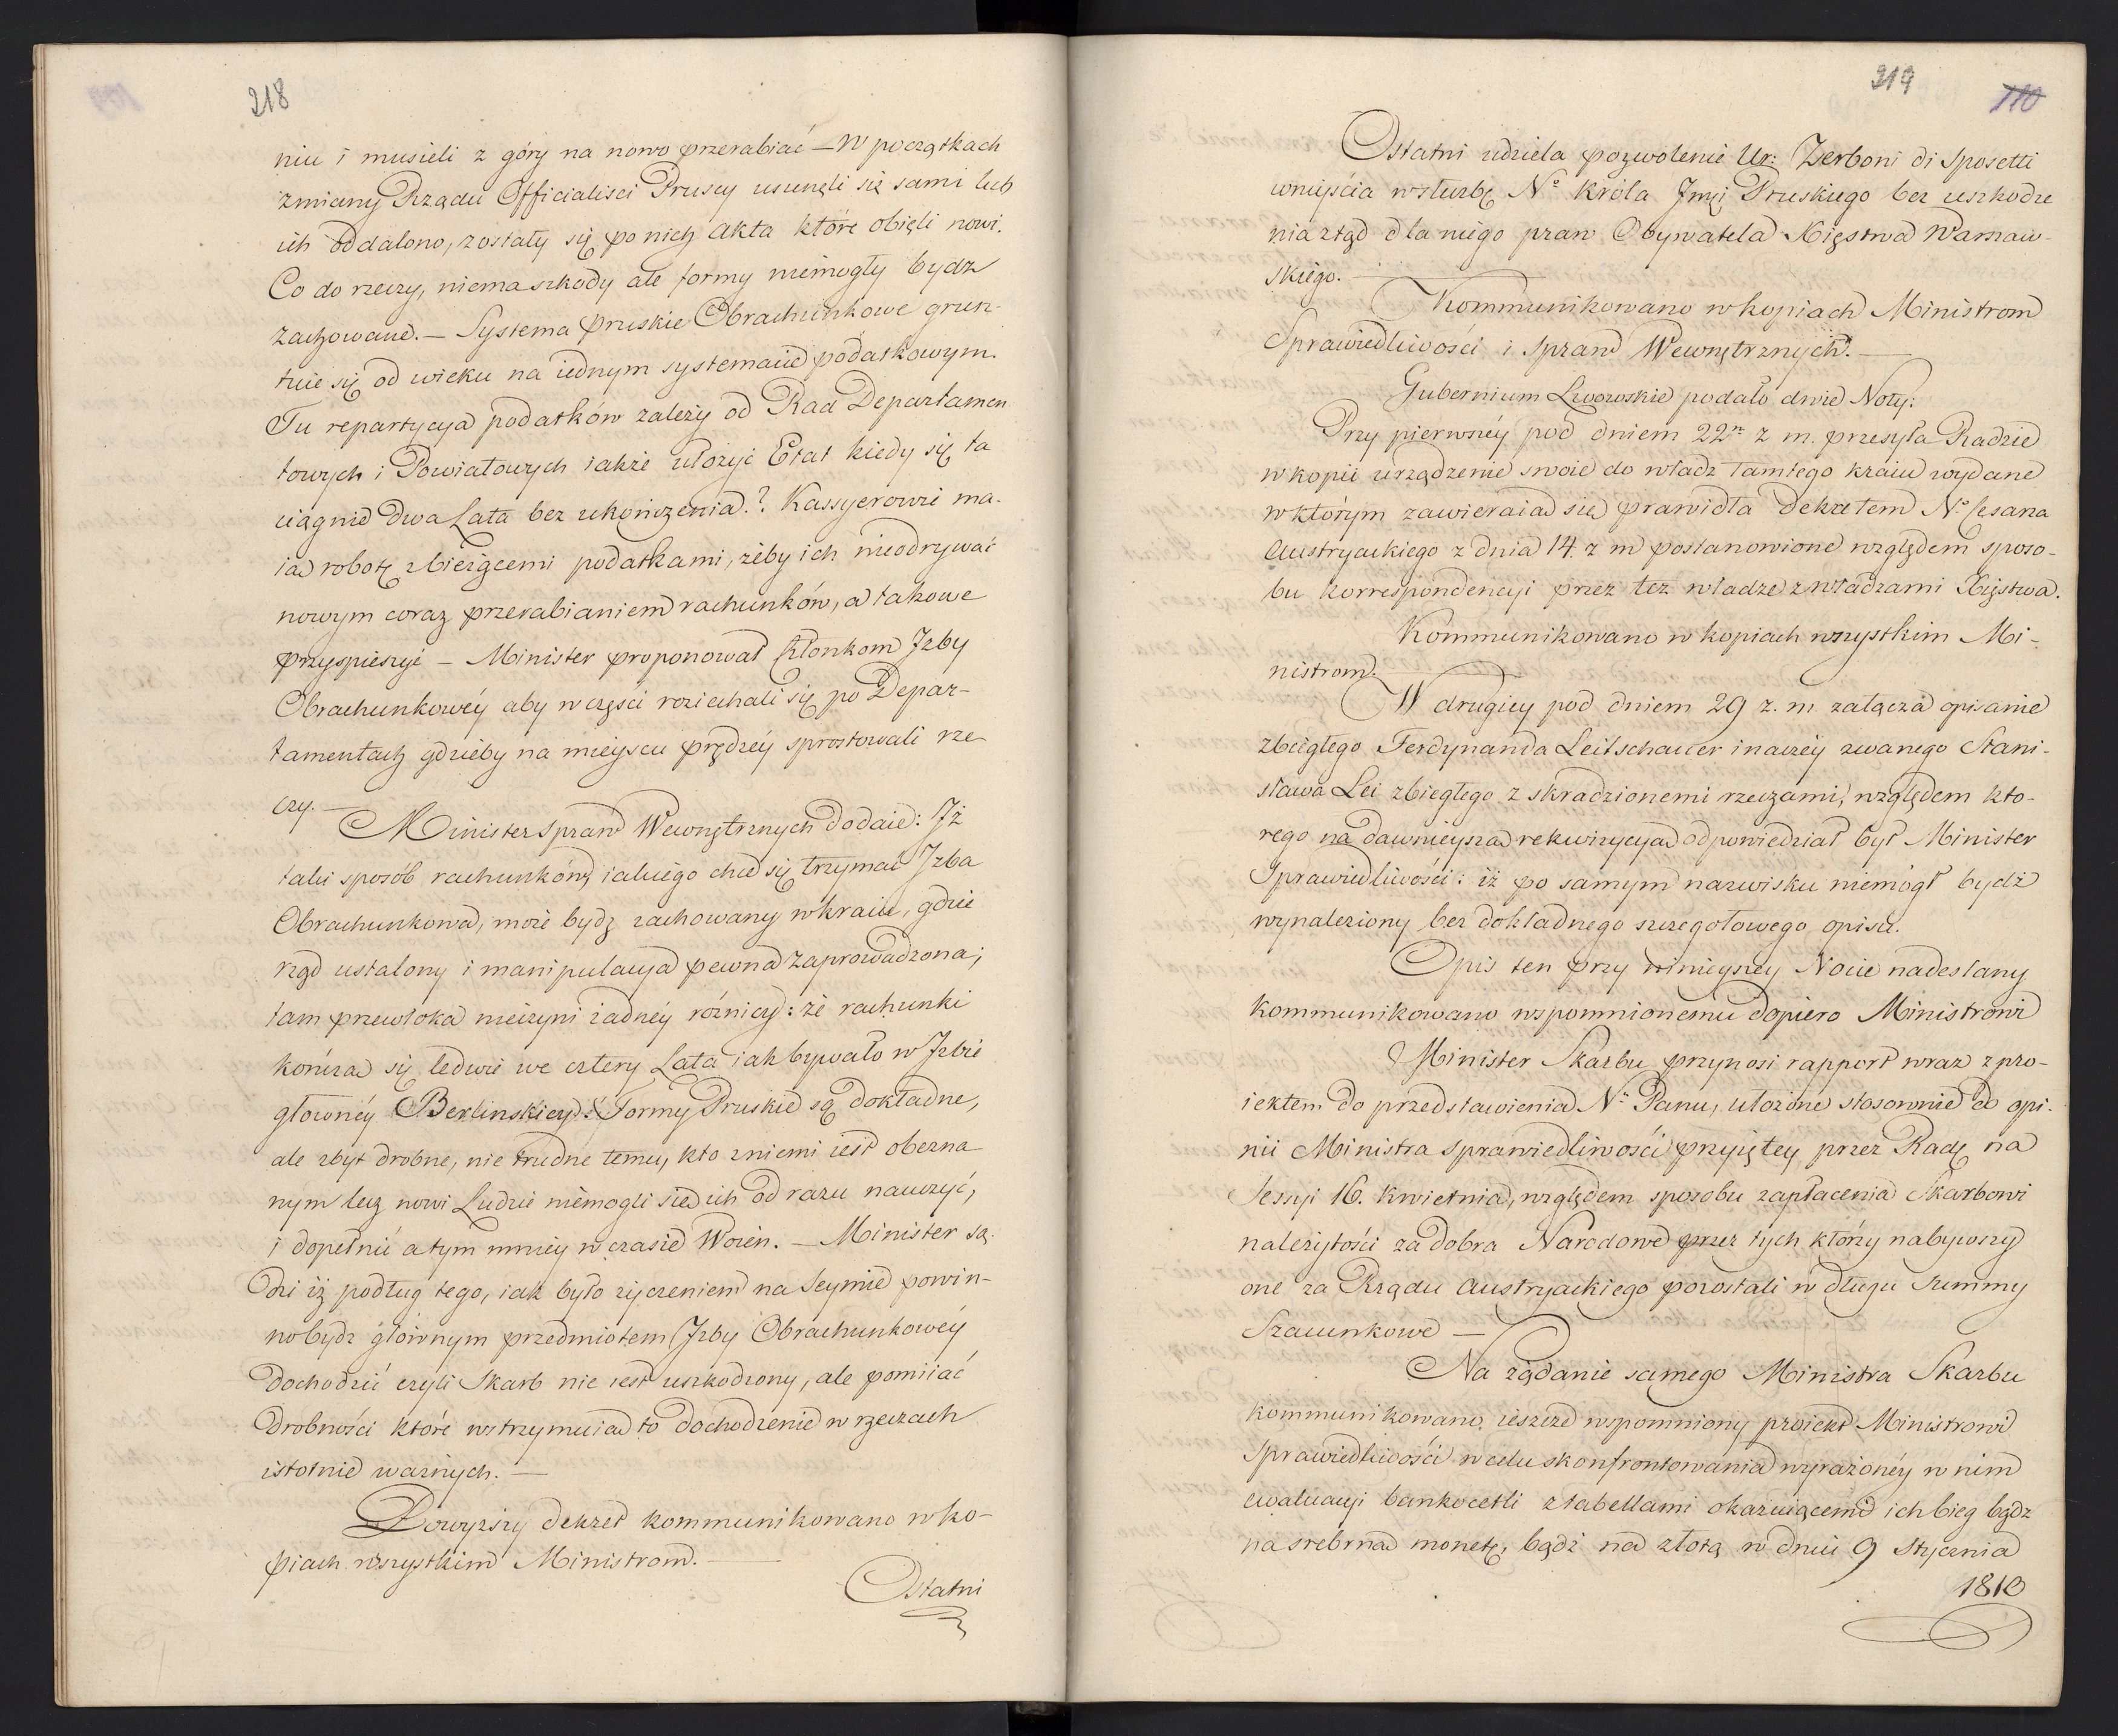 218
niu i musieli z góry na nowo przerabiać — W początkach
zmiany Rządu Officialisci Pruscy usunęli się sami lub
ich oddalono, zostały się po nich Akta które obięli nowi.
Co do rzeczy, niema szkody ale formy niemogły bydz
zachowane. — Systema pruskie Obrachunkowe grun-
tuie się od wieku na iednym systemacie podatkowym.
Tu repartycya podatków zależy od Rad Departamen
towych i Powiatowych iakże ułożyć Etat kiedy się ta
ciągnie dwa Lata bez ukończenia.? Kassyerowie ma-
ia robotę z bieżącemi podatkami, żeby ich nieodrywać
nowym coraz przerabianiem rachunków, a takowe
przyspieszyć — Minister proponował Członkom Izby
Obrachunkowéy aby w części roziechali się po Depar-
tamentach gdzieby na mieyscu prędzéy sprostowali rze
czy. —
Minister Spraw Wewnętrznych dodaie: Iż
taki sposób rachunków, iakiego chce się trzymać Izba
Obrachunkowa, może bydz zachowany w kraiu, gdzie
rząd ustalony i manipulacya pewna zaprowadzona;
tam przewłoka nieczyni żadnéy różnicy: że rachunki
kończa się ledwie we cztery Lata iak bywało w Izbie
głownéy Berlinskiey: Formy Pruskie są dokładne,
ale zbyt drobne, nie trudne temu, kto zniemi iest obezna
nym lecz nowi Ludzie niemogli sie ich od razu nauczyć,
i dopełnić a tym mniey w czasie Woien. — Minister są-
dzi iż podług tego, iak było życzeniem na Seymie powin-
no bydz głównym przedmiotem Izby Obrachunkowéy
dochodzić czyli Skarb nie iest uszkodzony, ale pomiiać
drobności które wstrzymuia to dochodzenie w rzeczach
istotnie ważnych. —
Powyższy dekret kommunikowano w ko-
piach wszystkim Ministrom. —
Ostatni
319
110
Ostatni udziela pozwolenie Ur: Zerboni di Sposetti
wniyścia w służbę No Króla Jmći Pruskiego bez uszkodze
nia ztąd dla niego praw Obywatela Xięstwa Warszaw-
skiego. —
Kommunikowano w kopiach Ministrom
Sprawiedliwości i Spraw Wewnętrznych. —
Gubernium Lwowskie podało dwie Noty:
Przy pierwszéy pod dniem 22n z. m. przesyła Radzie
w kopii urządzenie swoie do władz tamtego kraiu wydane
w którym zawieraia się prawidła dekretem No Cesarza
Austryackiego z dnia 14. z m postanowione względem sposo-
bu korrespondencyi przez też władze z władzami Xięstwa.
Kommunikowano w kopiach wszystkim Mi-
nistrom. —
W drugiey pod dniem 29 z. m. załącza opisanie
zbiegłego Ferdynanda Leitschauer inaczéy zwanego Stani-
sława Lei zbiegłego z skradzionemi rzeczami, względem któ-
rego na dawnieysza rekwizycya odpowiedział był Minister
Sprawiedliwości: iż po samym nazwisku niemógł bydź
wynaleziony bez dokładnego szczegółowego opisu.
Opis ten przy ninieyszey Nocie nadesłany
kommunikowano wspomnionemu dopiero Ministrowi
Minister Skarbu przynosi rapport wraz z pro-
iektem do przedstawienia No Panu, ułożone stosownie do opi-
nii Ministra Sprawiedliwości przyiętey przez Radę na
Sessyi 16. Kwietnia, względem sposobu zapłacenia Skarbowi
należytości za dobra Narodowe przez tych którzy nabywszy
one za Rządu Austryackiego pozostali w długu Summy
Szacunkowe —
Na żądanie samego Ministra Skarbu
kommunikowano ieszcze wspomniony proiekt Ministrowi
Sprawiedliwości w celu skonfrontowania wyrażonéy w nim
ewaluacyi bankocetli z tabellami okazuiącemi ich bieg bądz
na srebrna monetę, bądź na złotą w dniu 9 Stycznia
1810